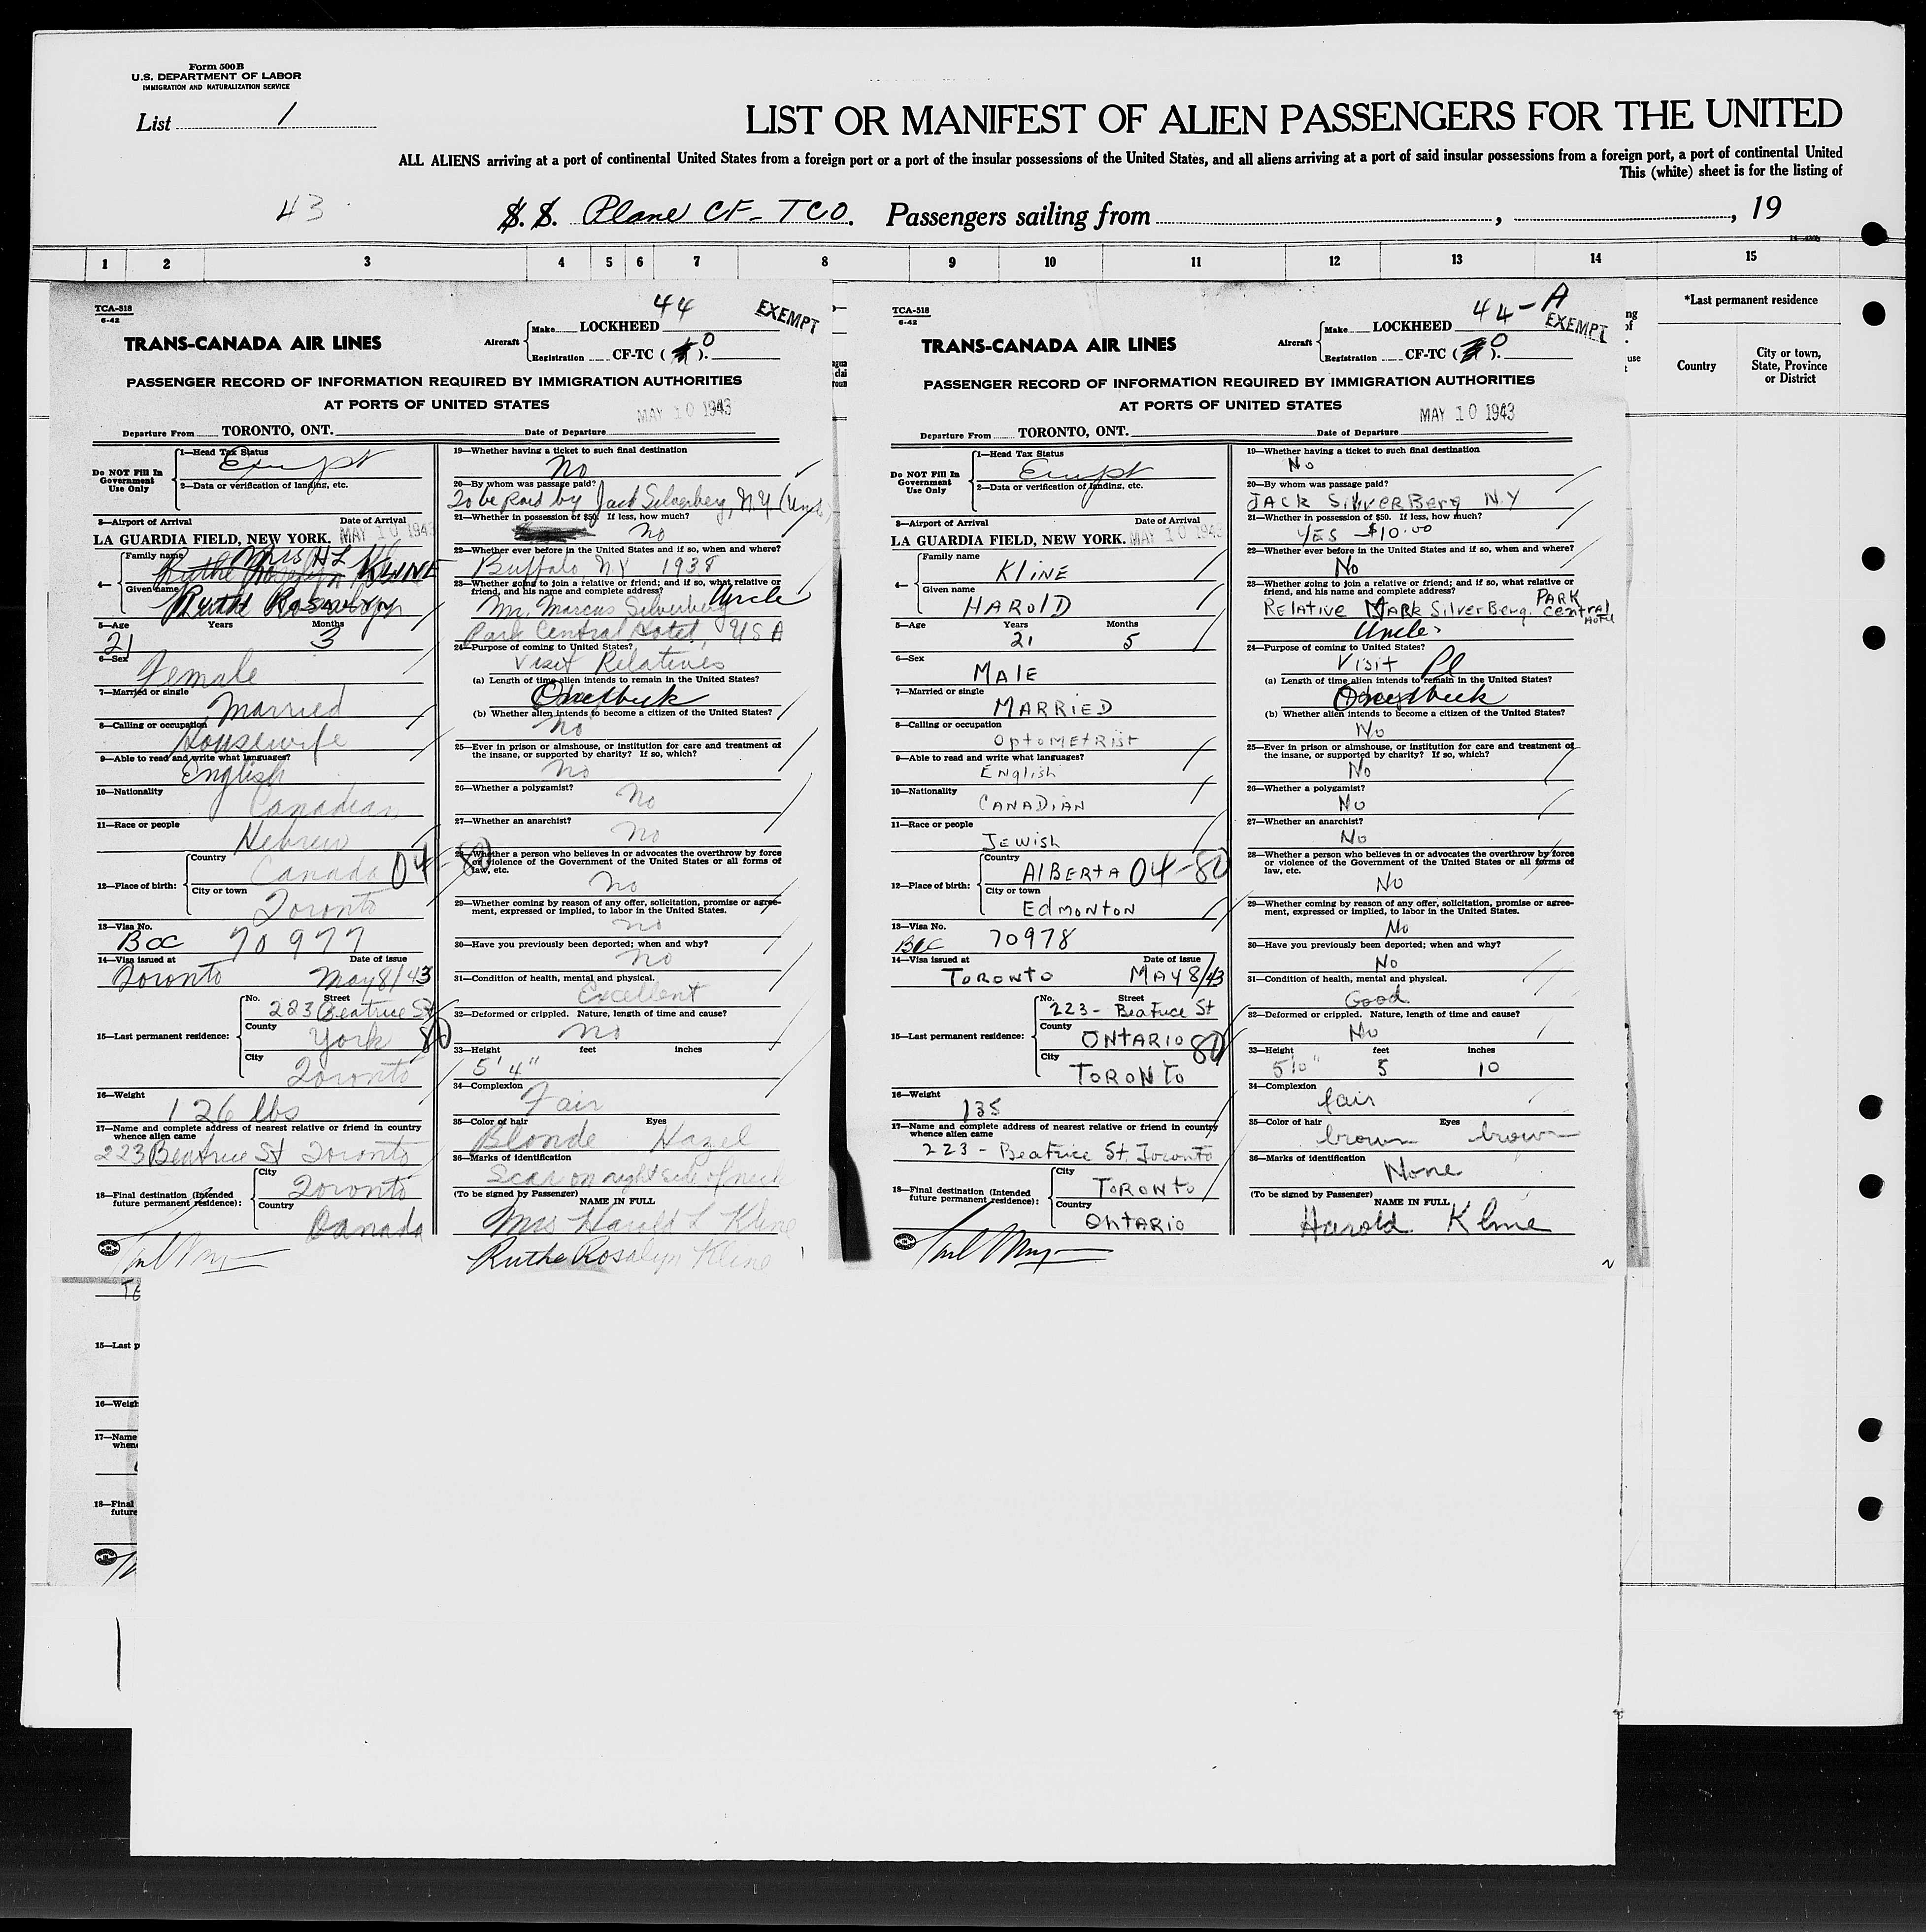 Form 500 B
U.S. DEPARTMENT OF LABOR
IMMIGRATION AND NATURALIZATION SERVICE
List 1
LIST OR MANIFEST OF ALIEN PASSENGERS FOR THE UNITED
ALL ALIENS arriving at a port of continental United States from a foreign port or a port of the insular possessions of the United States, and all aliens arriving at a port of said insular possessions from a foreign port, a port of continental United
This (white) sheet is for the listing of
43
S. S. Plane CF-TCO. Passengers sailing from , , 19
1 2 3 4 5 6 7 8 9 10 11 12 13 14 15
*Last permanent residence
Country
City or town, State, Province or District
TCA-518
6-42
44
EXEMPT
TRANS-CANADA AIR LINES
Aircraft
Make LOCKHEED
Registration CF-TC ( ). O
PASSENGER RECORD OF INFORMATION REQUIRED BY IMMIGRATION AUTHORITIES
AT PORTS OF UNITED STATES
MAY 10 1943
Departure From TORONTO, ONT. Date of Departure
Do NOT Fill In Government Use Only
1—Head Tax Status
Exempt
2—Data or verification of landing, etc.
3—Airport of Arrival Date of Arrival
LA GUARDIA FIELD, NEW YORK. MAY 10 1943
4—
Family name Mrs HL KLINE
Given name Ruthe Rosalyn
5—Age Years Months
21 3
6—Sex
Female
7—Married or single
Married
8—Calling or occupation
Housewife
9—Able to read and write what languages?
English
10—Nationality
Canadian
11—Race or people
Hebrew
12—Place of birth:
Country
Canada 04-80
City or town
Toronto
13—Visa No.
BCC 70977
14—Visa issued at Date of issue
Toronto May 8/43
15—Last permanent residence:
No. Street
223 Beatrice St
County
York 80
City
Toronto
16—Weight
126 lbs
17—Name and complete address of nearest relative or friend in country whence alien came
223 Beatrice St Toronto
18—Final destination (Intended future permanent residence):
City
Toronto
Country
Canada
19—Whether having a ticket to such final destination
No
20—By whom was passage paid?
To be paid by Jack Silverberg, N.Y. (Uncle)
21—Whether in possession of $50. If less, how much?
No
22—Whether ever before in the United States and if so, when and where?
Buffalo NY 1938
23—Whether going to join a relative or friend; and if so, what relative or friend, and his name and complete address?
Uncle
Mr. Marcus Silverberg
Park Central Hotel, USA
24—Purpose of coming to United States?
Visit Relatives
(a) Length of time alien intends to remain in the United States?
(b) Whether alien intends to become a citizen of the United States?
No
25—Ever in prison or almshouse, or institution for care and treatment of the insane, or supported by charity? If so, which?
No
26—Whether a polygamist?
No
27—Whether an anarchist?
No
28—Whether a person who believes in or advocates the overthrow by force or violence of the Government of the United States or all forms of law, etc.
No
29—Whether coming by reason of any offer, solicitation, promise or agreement, expressed or implied, to labor in the United States.
no
30—Have you previously been deported; when and why?
No
31—Condition of health, mental and physical.
Excellent
32—Deformed or crippled. Nature, length of time and cause?
No
33—Height feet inches
5' 4"
34—Complexion
Fair
35—Color of hair Eyes
Blonde Hazel
36—Marks of identification
Scar on right side of neck
(To be signed by Passenger) NAME IN FULL
Mrs. Harold L Kline
Ruthe Rosalyn Kline
TCA-518
6-42
44-A
EXEMPT
TRANS-CANADA AIR LINES
Aircraft
Make LOCKHEED
Registration CF-TC ( ). O
PASSENGER RECORD OF INFORMATION REQUIRED BY IMMIGRATION AUTHORITIES
AT PORTS OF UNITED STATES
MAY 10 1943
Departure From TORONTO, ONT. Date of Departure
Do NOT Fill In Government Use Only
1—Head Tax Status
Exempt
2—Data or verification of landing, etc.
3—Airport of Arrival Date of Arrival
LA GUARDIA FIELD, NEW YORK. MAY 10 1943
4—
Family name
KLINE
Given name
HAROLD
5—Age Years Months
21 5
6—Sex
MALE
7—Married or single
MARRIED
8—Calling or occupation
OPTOMETRIST
9—Able to read and write what languages?
English
10—Nationality
CANADIAN
11—Race or people
JEWISH
12—Place of birth:
Country
ALBERTA 04-80
City or town
EDMONTON
13—Visa No.
BCC 70978
14—Visa issued at Date of issue
TORONTO MAY 8/43
15—Last permanent residence:
No. Street
223 - Beatrice St
County
ONTARIO 80
City
TORONTO
16—Weight
135
17—Name and complete address of nearest relative or friend in country whence alien came
223 - Beatrice St. Toronto
18—Final destination (Intended future permanent residence):
City
TORONTO
Country
ONTARIO
19—Whether having a ticket to such final destination
No
20—By whom was passage paid?
JACK SILVERBERG N.Y
21—Whether in possession of $50. If less, how much?
YES - $10.00
22—Whether ever before in the United States and if so, when and where?
No
23—Whether going to join a relative or friend; and if so, what relative or friend, and his name and complete address?
RELATIVE MARK SILVERBERG. PARK CENTRAL HOTEL
Uncle
24—Purpose of coming to United States?
Visit Pl
(a) Length of time alien intends to remain in the United States?
(b) Whether alien intends to become a citizen of the United States?
No
25—Ever in prison or almshouse, or institution for care and treatment of the insane, or supported by charity? If so, which?
No
26—Whether a polygamist?
No
27—Whether an anarchist?
No
28—Whether a person who believes in or advocates the overthrow by force or violence of the Government of the United States or all forms of law, etc.
No
29—Whether coming by reason of any offer, solicitation, promise or agreement, expressed or implied, to labor in the United States.
No
30—Have you previously been deported; when and why?
No
31—Condition of health, mental and physical.
Good
32—Deformed or crippled. Nature, length of time and cause?
No
33—Height feet inches
5'10" 5 10
34—Complexion
fair
35—Color of hair Eyes
brown brown
36—Marks of identification
None
(To be signed by Passenger) NAME IN FULL
Harold Kline
15—Last p
16—Weigh
17—Name
when
18—Final
future